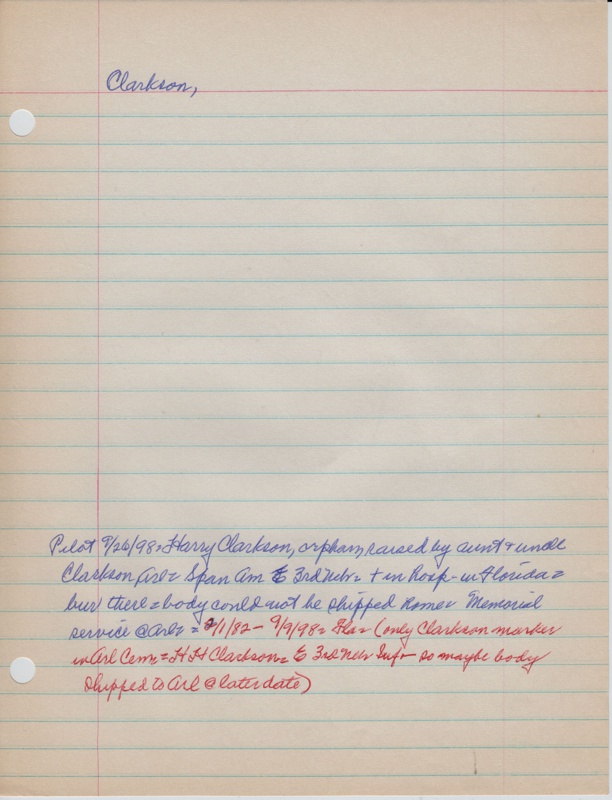 Clarkson,
Pilot 9/26/98= Harry Clarkson, orphan, raised by aunt + uncle
Clarkson, Arl= Span Am E 3rd Nebr= + in Hosp- in Florida=
bur there= body could not be shipped home= Memorial
service @ Arl= 2/1/82- 9/9/98= Fla= (only Clarkson marker
in Arl Cem= H H Clarkson= E 3rd Neb Inf- so maybe body
shipped to Arl @ later date)